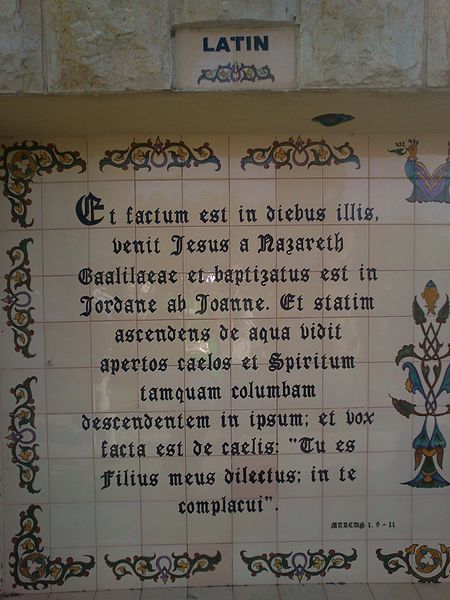 LATIN
Et factum est in diebus illis,
venit Jesus a Nazareth
Gaalilaeae et baptizatus est in
Jordane ab Joanne. Et statim
ascendens de aqua vidit
apertos caelos et Spiritum
tamquam columbam
descendentem in ipsum; et vox
facta est de caelis: "Tu es
Filius meus dilectus; in te
complacui".
MARCUS 1, 9 - 11